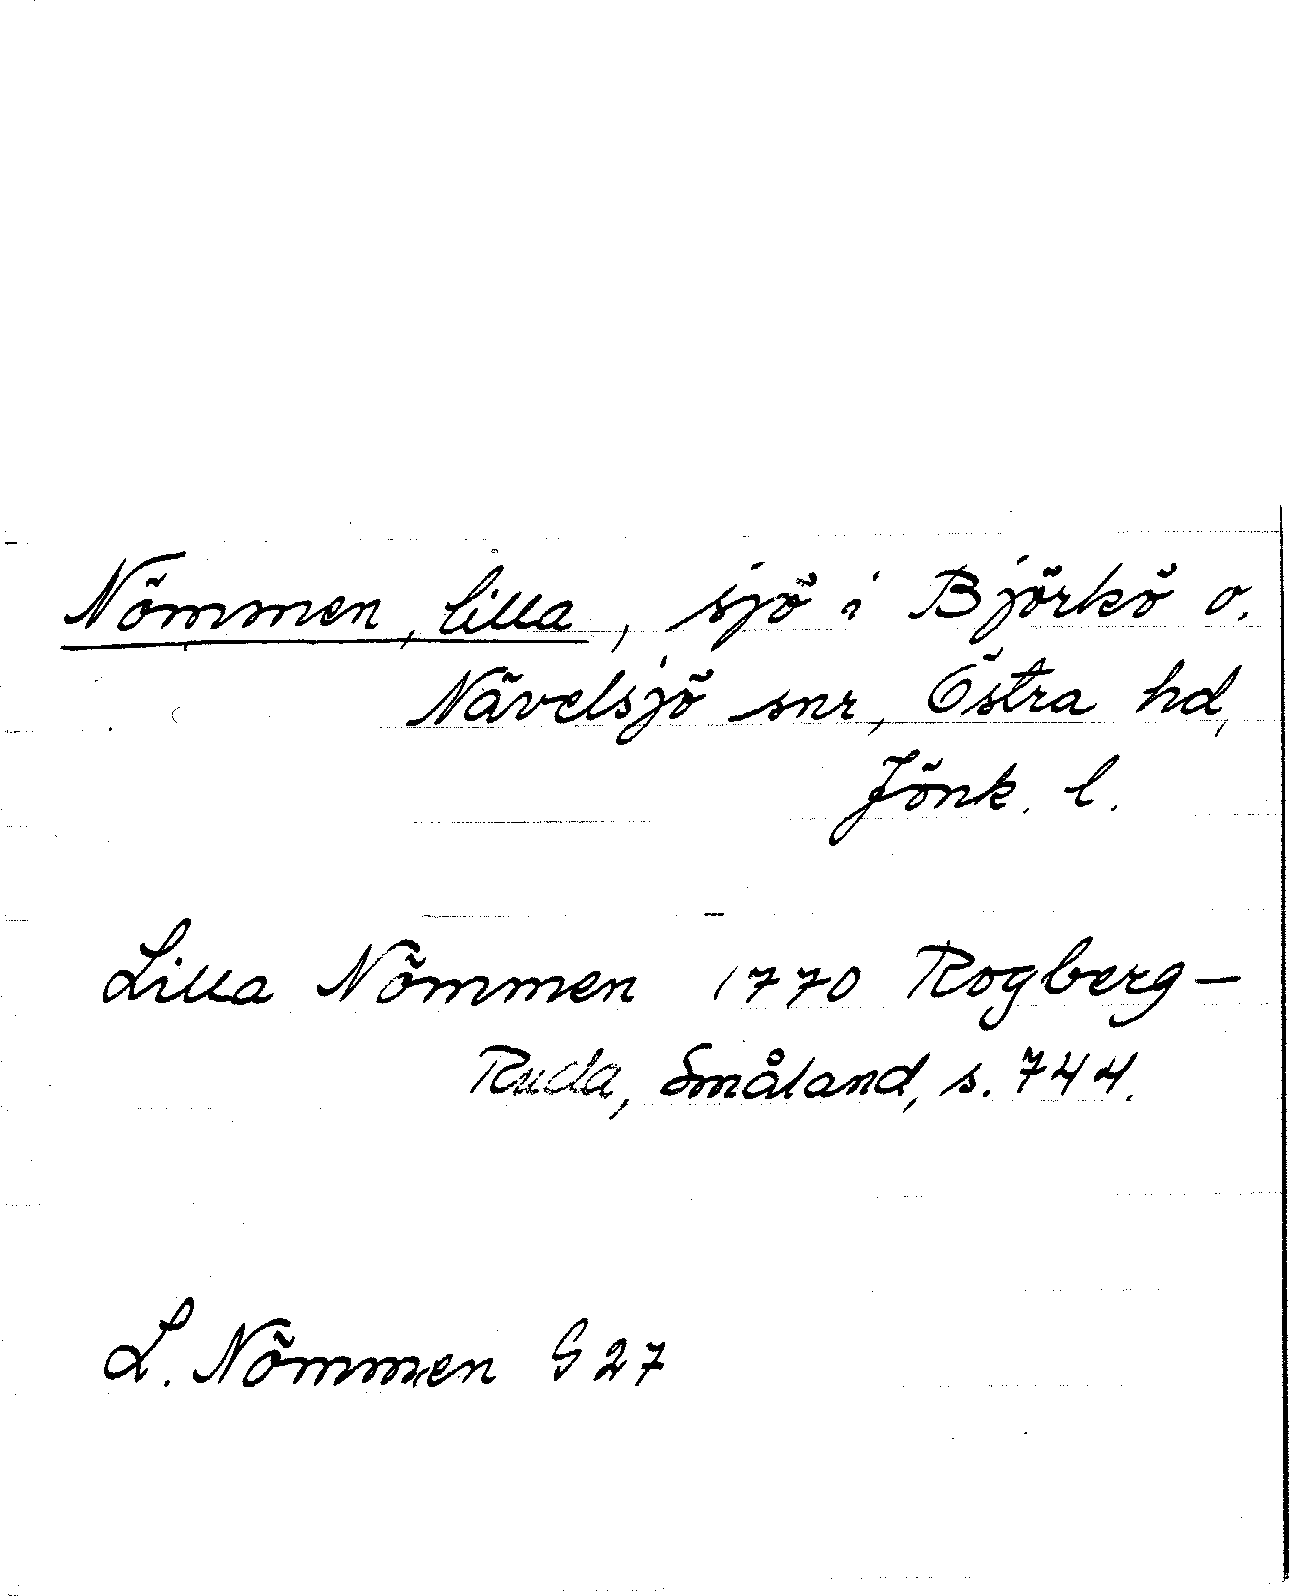 Nömmen, lilla, sjö i Björkö o.
Nävelsjö snr, Östra hd,
Jönk. l.
Lilla Nömmen 1770 Rogberg-
Ruda, Småland, s. 744.
L. Nömmen G 27